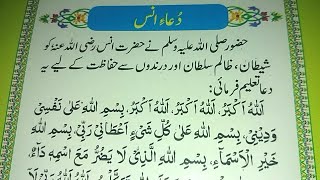 دُعاء انس
حضور صلی اللہ علیہ وسلم نے حضرت انس رضی اللہ عنہ کو
شیطان، ظالم سلطان اور درندوں سے حفاظت کے لیے یہ
دعا تعلیم فرمائی:
اَللّٰهُ اَكْبَرُ، اَللّٰهُ اَكْبَرُ، اَللّٰهُ اَكْبَرُ، بِسْمِ اللّٰهِ عَلٰى نَفْسِىْ
وَدِيْنِىْ، بِسْمِ اللّٰهِ عَلٰى كُلِّ شَىْءٍ اَعْطَانِىْ رَبِّىْ، بِسْمِ اللّٰهِ
خَيْرِ الْاَسْمَآءِ، بِسْمِ اللّٰهِ الَّذِىْ لَا يَضُرُّ مَعَ اسْمِهٖ دَآءٌ،